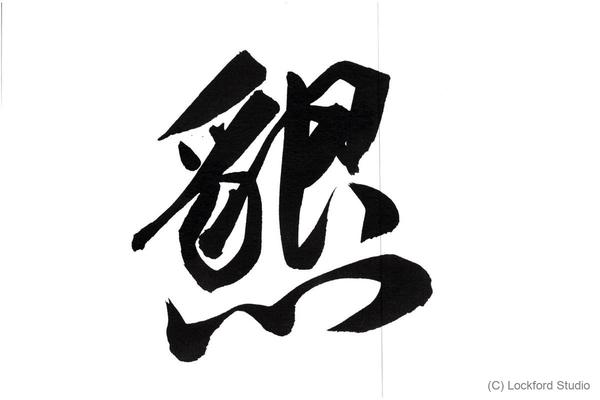 懇
(C) Lockford Studio